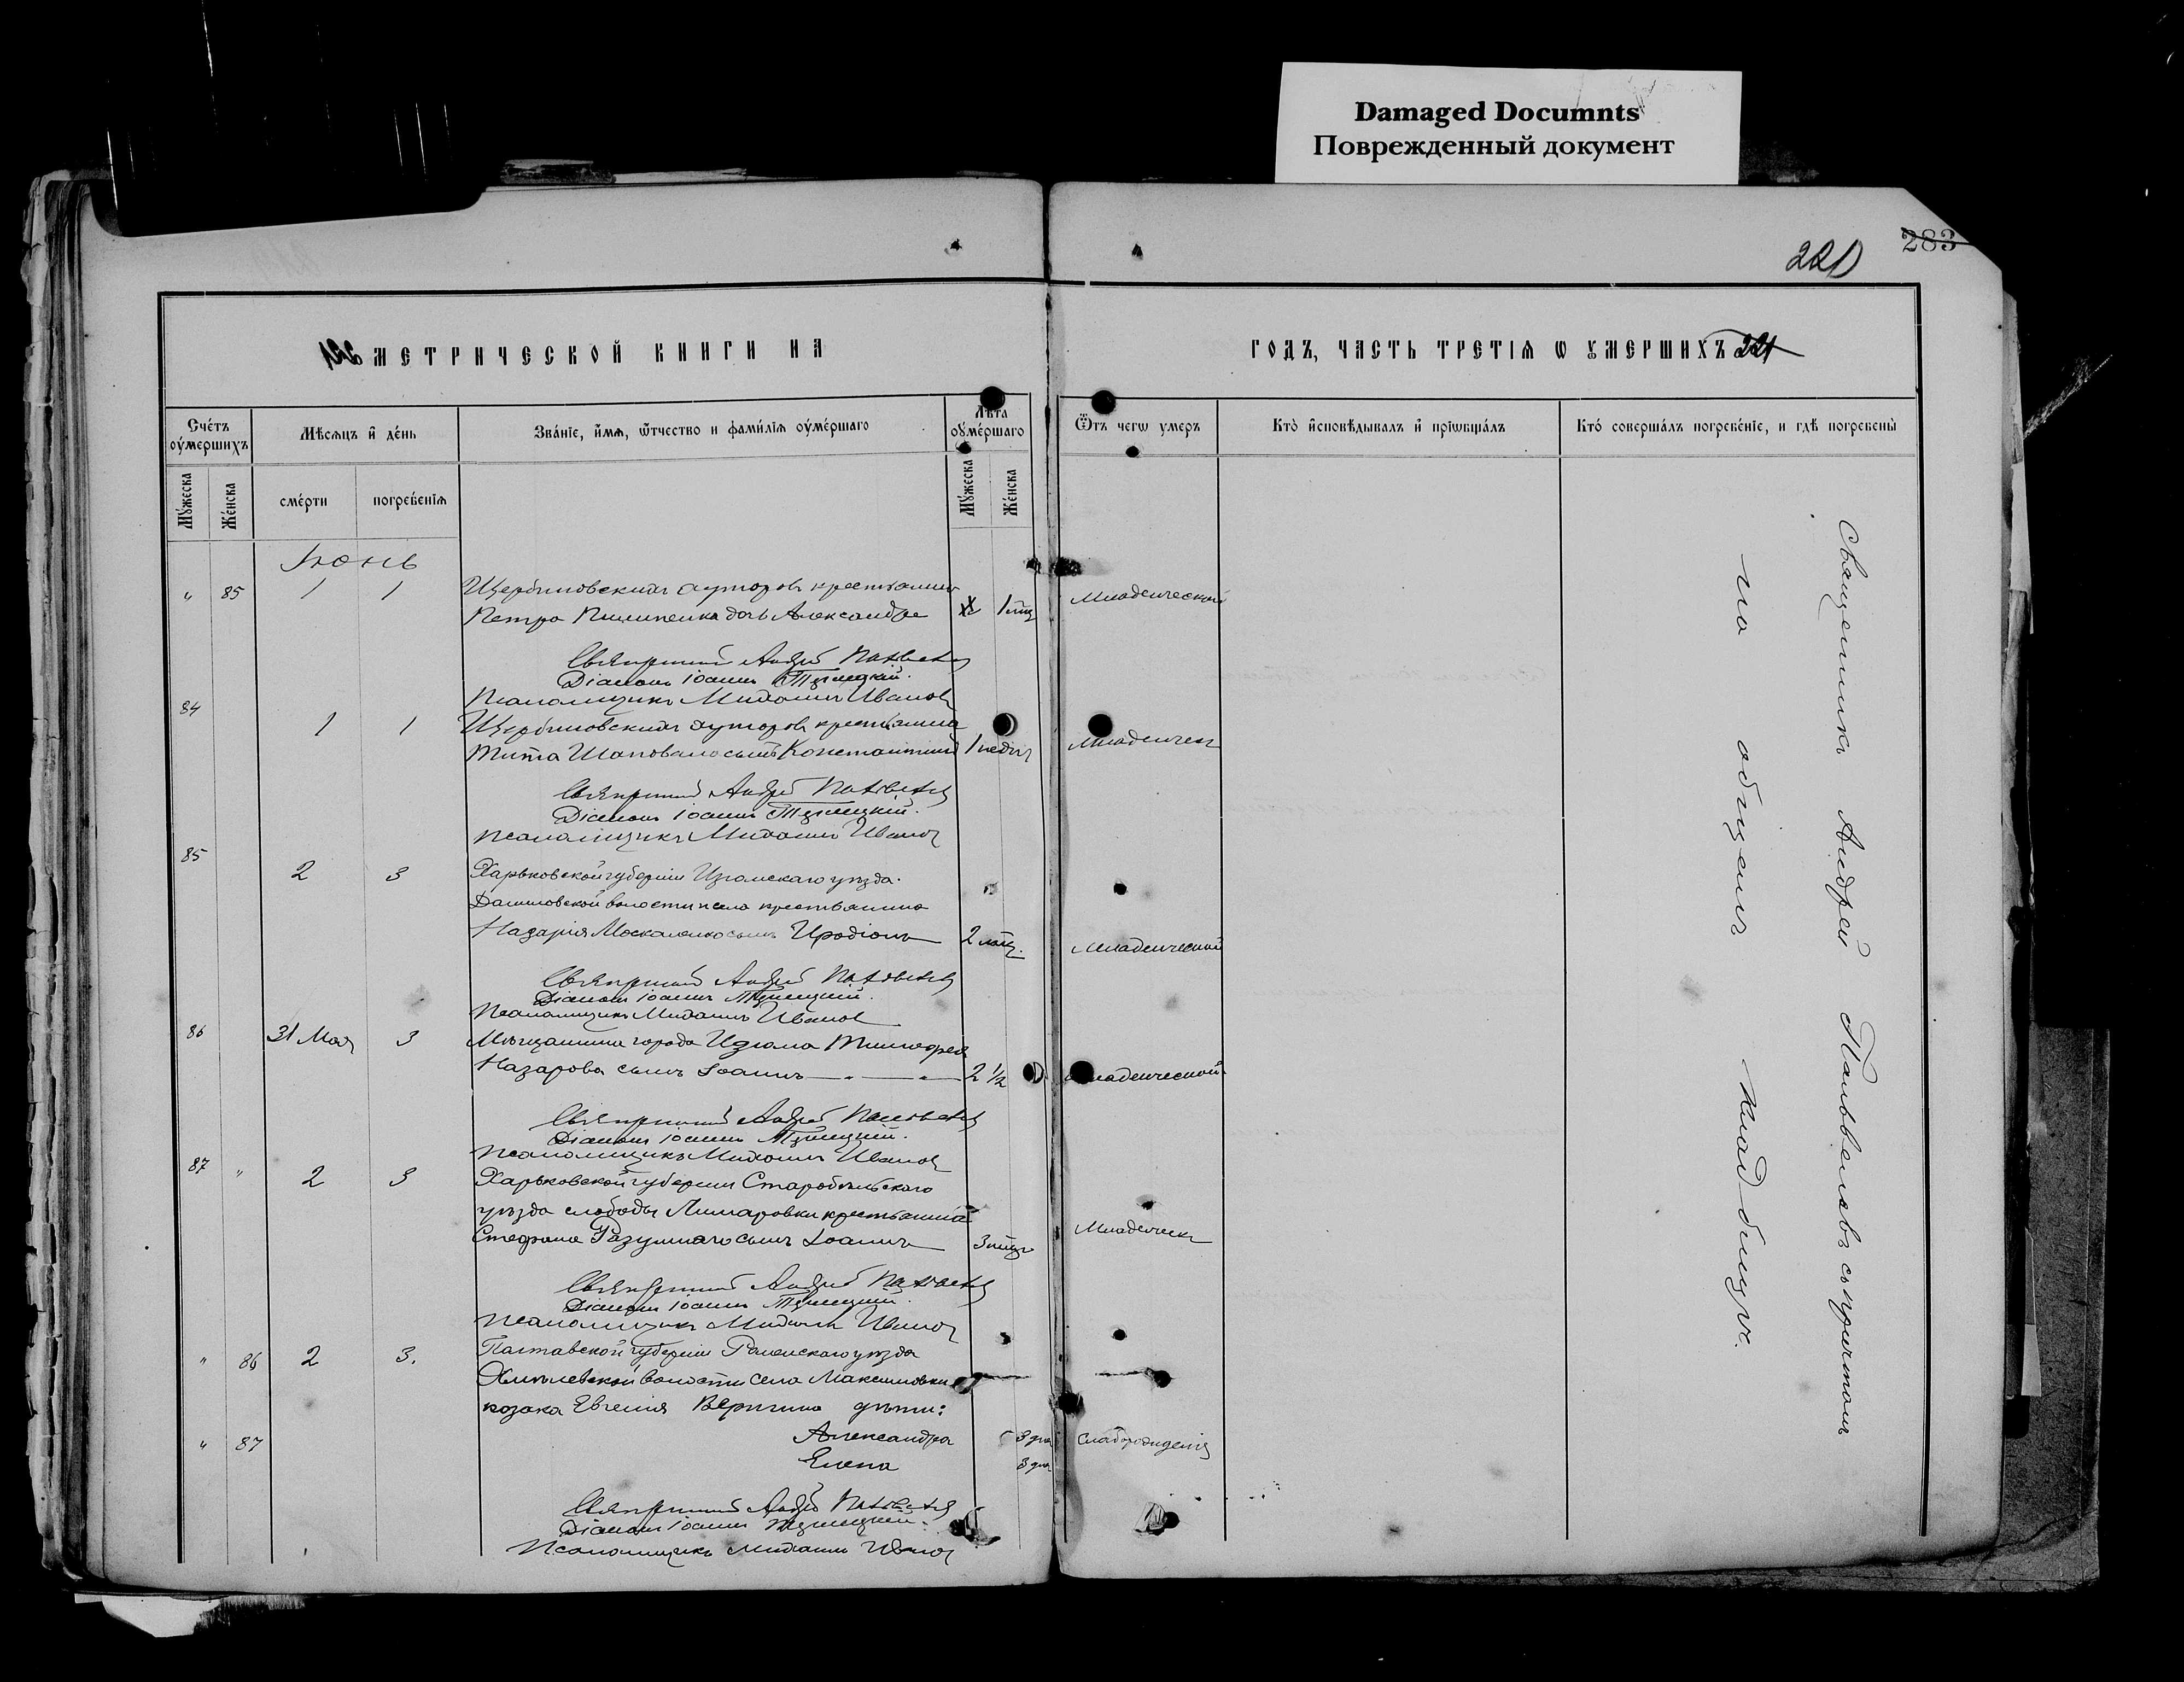 Damaged Documnts
Поврежденный документ
283
221
МЕТРИЧЕСКОЙ КНИГИ НА
ГОДЪ, ЧАСТЬ ТРЕТІѦ Ѡ ОУМЕРШИХЪ 221
Счетъ оумершихъ
Мѣсяцъ и день
Званіе, имя, ѿчество и фамилія оумершаго
Лѣта оумершаго
Ѿъ чегѡ умеръ
Кто исповѣдывалъ и пріѡбщалъ
Кто совершалъ погребеніе, и гдѣ погребены
Мужеска
Женска
смерти
погребенія
Мужеска
Женска
Іюнь
" 85 1 1 Щербиновскихъ хуторовъ крестьянина
Петра Пилипенка дочь Александра 1 Младенческой
Священникъ Андрей
Діаконъ Іоаннъ
Псаломщикъ Михаилъ Ивановъ
84
1 1 Щербиновскихъ хуторовъ крестьянина
Тита Шаповала сынъ Константинъ 1 недѣл Младенческ
Священникъ Андрей
Діаконъ Іоаннъ
Псаломщикъ Михаилъ Ивановъ
85
2 3 Харьковской губерніи Изюмскаго уѣзда
волости и села крестьянина
Назарія Москаленко сынъ Иродіонъ 2 Младенческой
Священникъ Андрей
Діаконъ Іоаннъ
Псаломщикъ Михаилъ Ивановъ
86 31 Мая 3 Мѣщанина города Изюма Тимофея
Назарова сынъ Іоаннъ 2 1/2 Младенческой
Священникъ Андрей
Діаконъ Іоаннъ
Псаломщикъ Михаилъ Ивановъ
87 " 2 3 Харьковской губерніи Старобѣльскаго
уѣзда слободы Лимаровки крестьянина
Стефана Разумнаго сынъ Іоаннъ 3 Младенческ
Священникъ Андрей
Діаконъ Іоаннъ
Псаломщикъ Михаилъ Ивановъ
" 86 2 3. Полтавской губерніи Роменскаго уѣзда
волости села Максимовки
козака Евгенія дѣти:
Александра 3 дня
" 87
Елена 3 дня
Священникъ Андрей
Діаконъ Іоаннъ
Псаломщикъ Михаилъ Ивановъ
Священникъ Андрей съ причтомъ
на общемъ кладбищѣ.